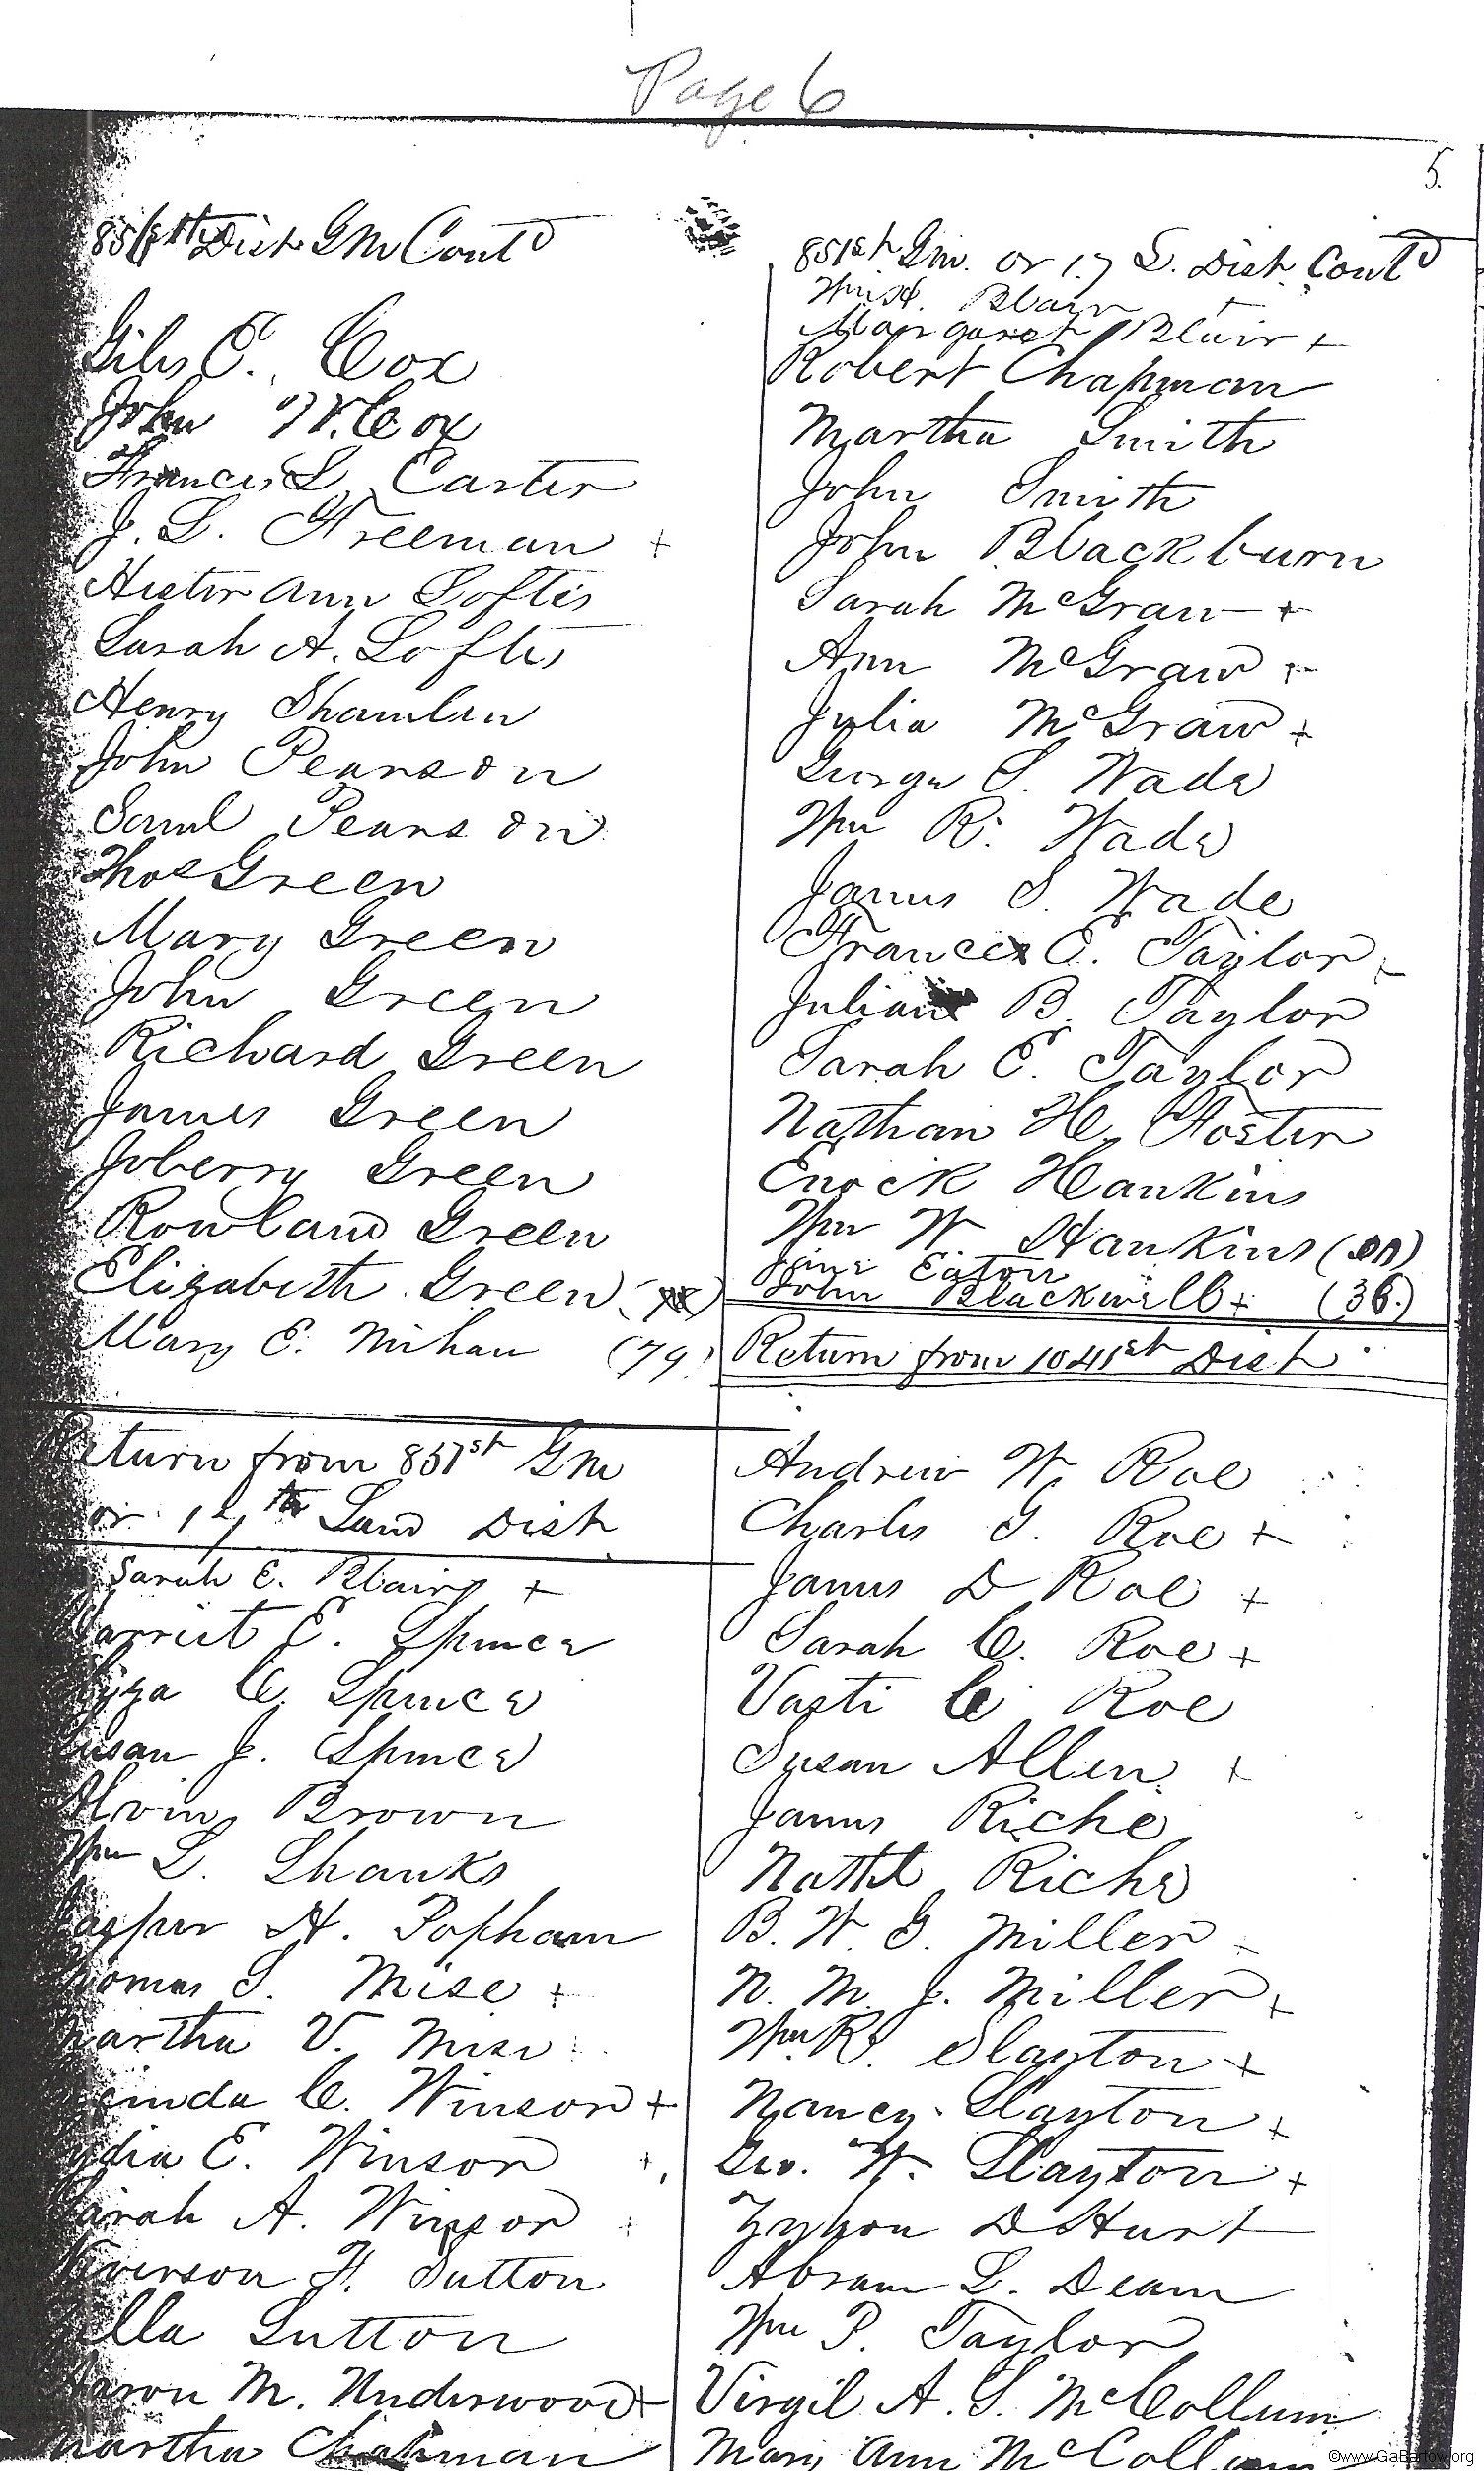 Page 6
5.
856th Dist GM Contd
Giles E. Cox
John W. Cox
Frances L Carter
J. L. Freeman +
Hester Ann Loftis
Sarah A. Loftis
Henry Shamlin
John Pearson
Saml Pearson
Thos Green
Mary Green
John Green
Richard Green
James Green
Joberry Green
Rowland Green
Elizabeth Green
Mary E. Mihan (79)
Return from 851st GM
or 17th Land Dist
Sarah E. Blair +
Harriet E. Spence
Eliza C. Spence
Susan J. Spence
Alvin Brown
Wm L. Shanks
Jasper H. Popham
Thomas S. Mise +
Martha V. Mise
C. Winson +
Lydia E. Winson +
Sarah A. Winson +
Iverson H. Sutton
Ella Sutton
Aaron M. Underwood +
Martha Chapman
851st Gm. or 17 L. Dist. Contd
Wm H. Blair
Margaret Blair +
Robert Chapman
Martha Smith
John Smith
John Blackburn
Sarah McGraw +
Ann McGraw +
Julia McGraw +
George S. Wade
Wm R. Wade
James S. Wade
Frances E. Taylor +
Julian B. Taylor
Sarah E. Taylor
Nathan H. Foster
Enock Hankins
Wm W Hankins
Jane Eaton
John Blackwell + (36.)
Return from 1041st Dist
Andrew W. Roe
Charles G. Roe +
James D Roe +
Sarah C. Roe +
Vasti C Roe
Susan Allen +
James Riche
Nathl Riche
B. W. G. Miller
N. M. J. Miller +
Wm R. Slayton +
Nancy Slayton +
Geo. W. Slayton +
D Hurt
Abram L. Dean
Wm P. Taylor
Virgil A. S. McCollum
Mary Ann McCollum
©www.GaBartow.org